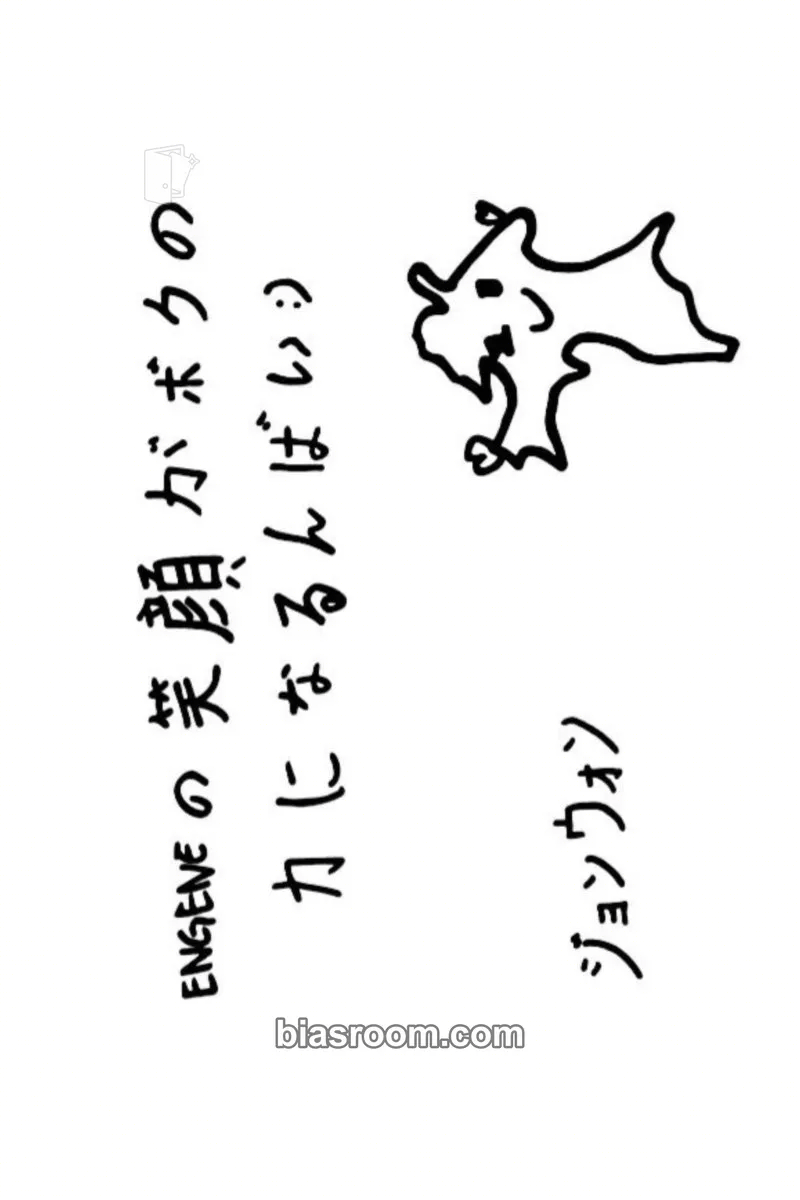 ENGENEの笑顔がボクの
力になるんばい:)
ジョンウォン
biasroom.com